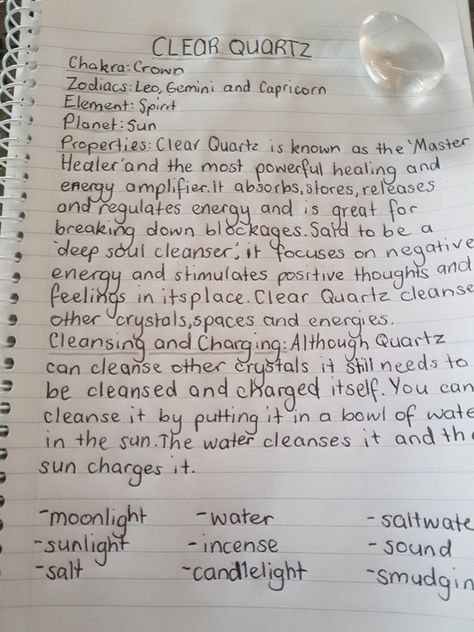 CLEAR QUARTZ
Chakra: Crown
Zodiacs: Leo, Gemini and Capricorn
Element: Spirit
Planet: Sun
Properties: Clear Quartz is known as the 'Master
Healer' and the most powerful healing and
energy amplifier. It absorbs, stores, releases
and regulates energy and is great for
breaking down blockages. Said to be a
'deep soul cleanser', it focuses on negative
energy and stimulates positive thoughts and
feelings in its place. Clear Quartz cleanse
other crystals, spaces and energies.
Cleansing and Charging: Although Quartz
can cleanse other crystals it still needs to
be cleansed and charged itself. You can
cleanse it by putting it in a bowl of wate
in the sun. The water cleanses it and th
sun charges it.
-moonlight -water -saltwate
-sunlight -incense -sound
-salt -candlelight -smudgin